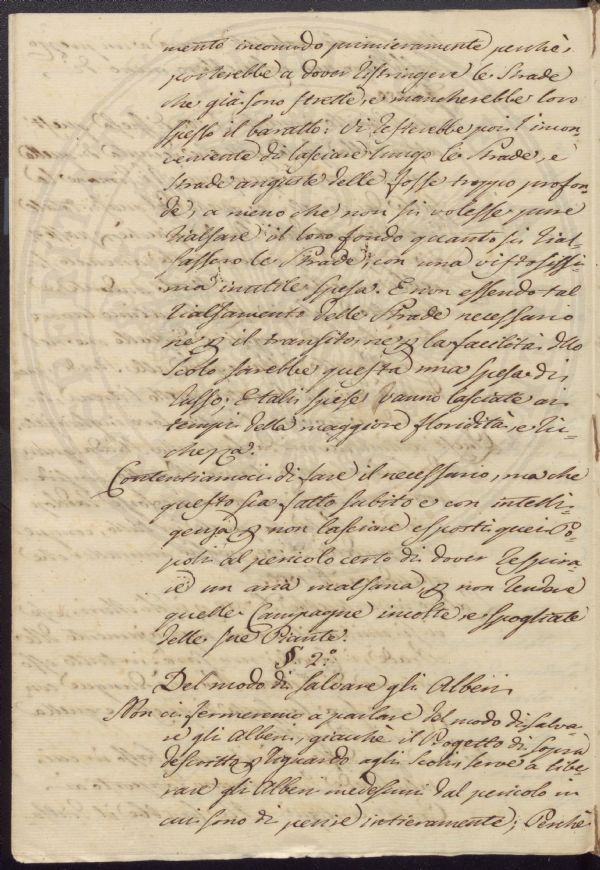 mento incomodo primieramente perchè
porterebbe a dover ristringere le Strade
che già sono strette, e mancherebbe loro
spesso il baratto: vi resterebbe poi l'incon-
veniente di lasciare lungo le Strade, e
Strade anguste delle fosse troppo profon-
de, a meno che non si volesse pure
rialsare il loro fondo quanto si rial-
sassero le Strade, con una vistosissi-
ma inutile spesa. E non essendo tal
rialsamento delle Strade necessario
nè p il transito, nè p la facilità dllo
Scolo sarebbe questa una spesa di
lusso; E tali spese vanno lasciate ai
tempi della maggiore floridità, e ric-
chezza.
Contentiamoci di fare il necessario, ma che
questo sia fatto subito e con intelli-
genza p non lasciare esposti quei Po-
poli al pericolo certo di dover respira-
re un aria malsana, p non rendere
quelle Campagne incolte, e spogliate
delle sue Piante.
§. 2°.
Del modo di salvare gli Alberi.
Non ci fermeremo a parlare del modo di salva-
re gli Alberi, giacche il Progetto di sopra
descritto p riguardo agli Scoli serve a libe-
rare gli Alberi medesimi dal pericolo in
cui sono di perire intieramente; Perchè